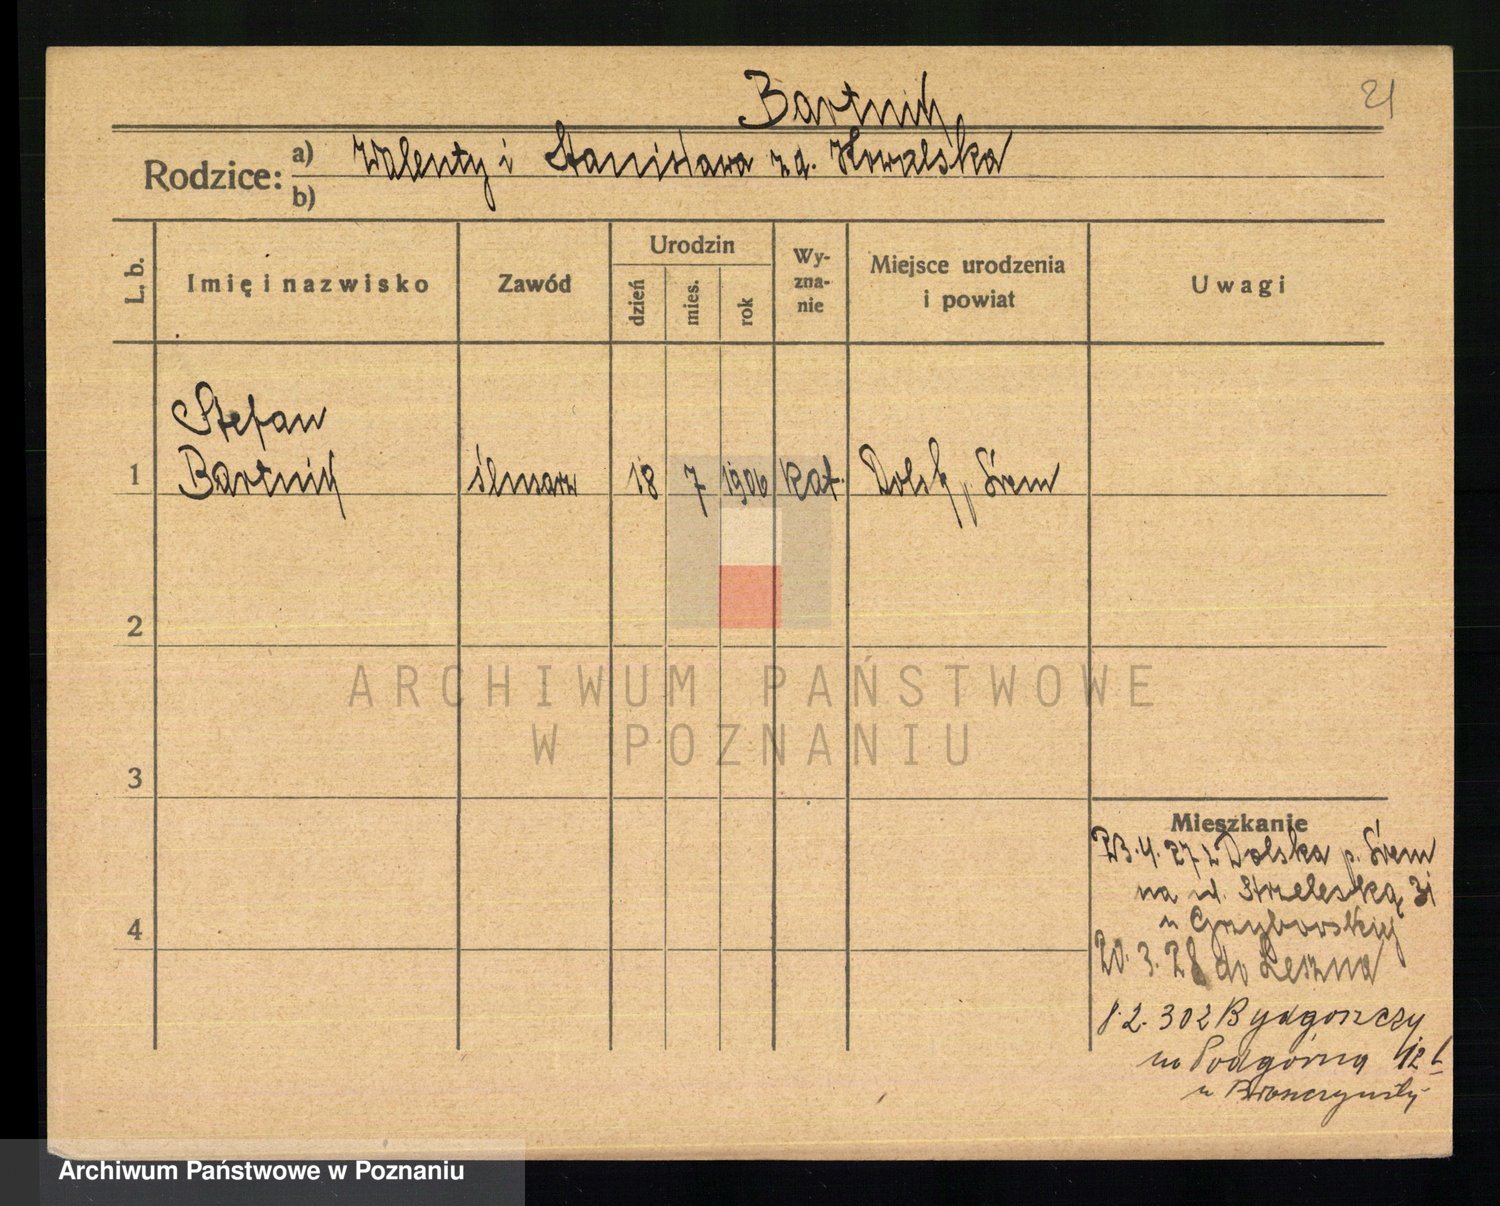 Bartnik
21
Rodzice:
a) Walenty i Stanisława z d. Kowalska
b)
L. b.
Imię i nazwisko
Zawód
Urodzin
dzień
mies.
rok
Wy-
zna-
nie
Miejsce urodzenia
i powiat
Uwagi
Stefan
1 Bartnik ślusarz 18 7 1906 kat. Dolsk, Śrem
2
ARCHIWUM PAŃSTWOWE
W POZNANIU
3
Mieszkanie
23.4.27 z Dolska p. Śrem
na ul. Strzelecką 31
4
u Grzyborskiej
20.3.28 do Leszna
8.2.30 z Bydgoszczy
na Podgórną 12
u
Archiwum Państwowe w Poznaniu